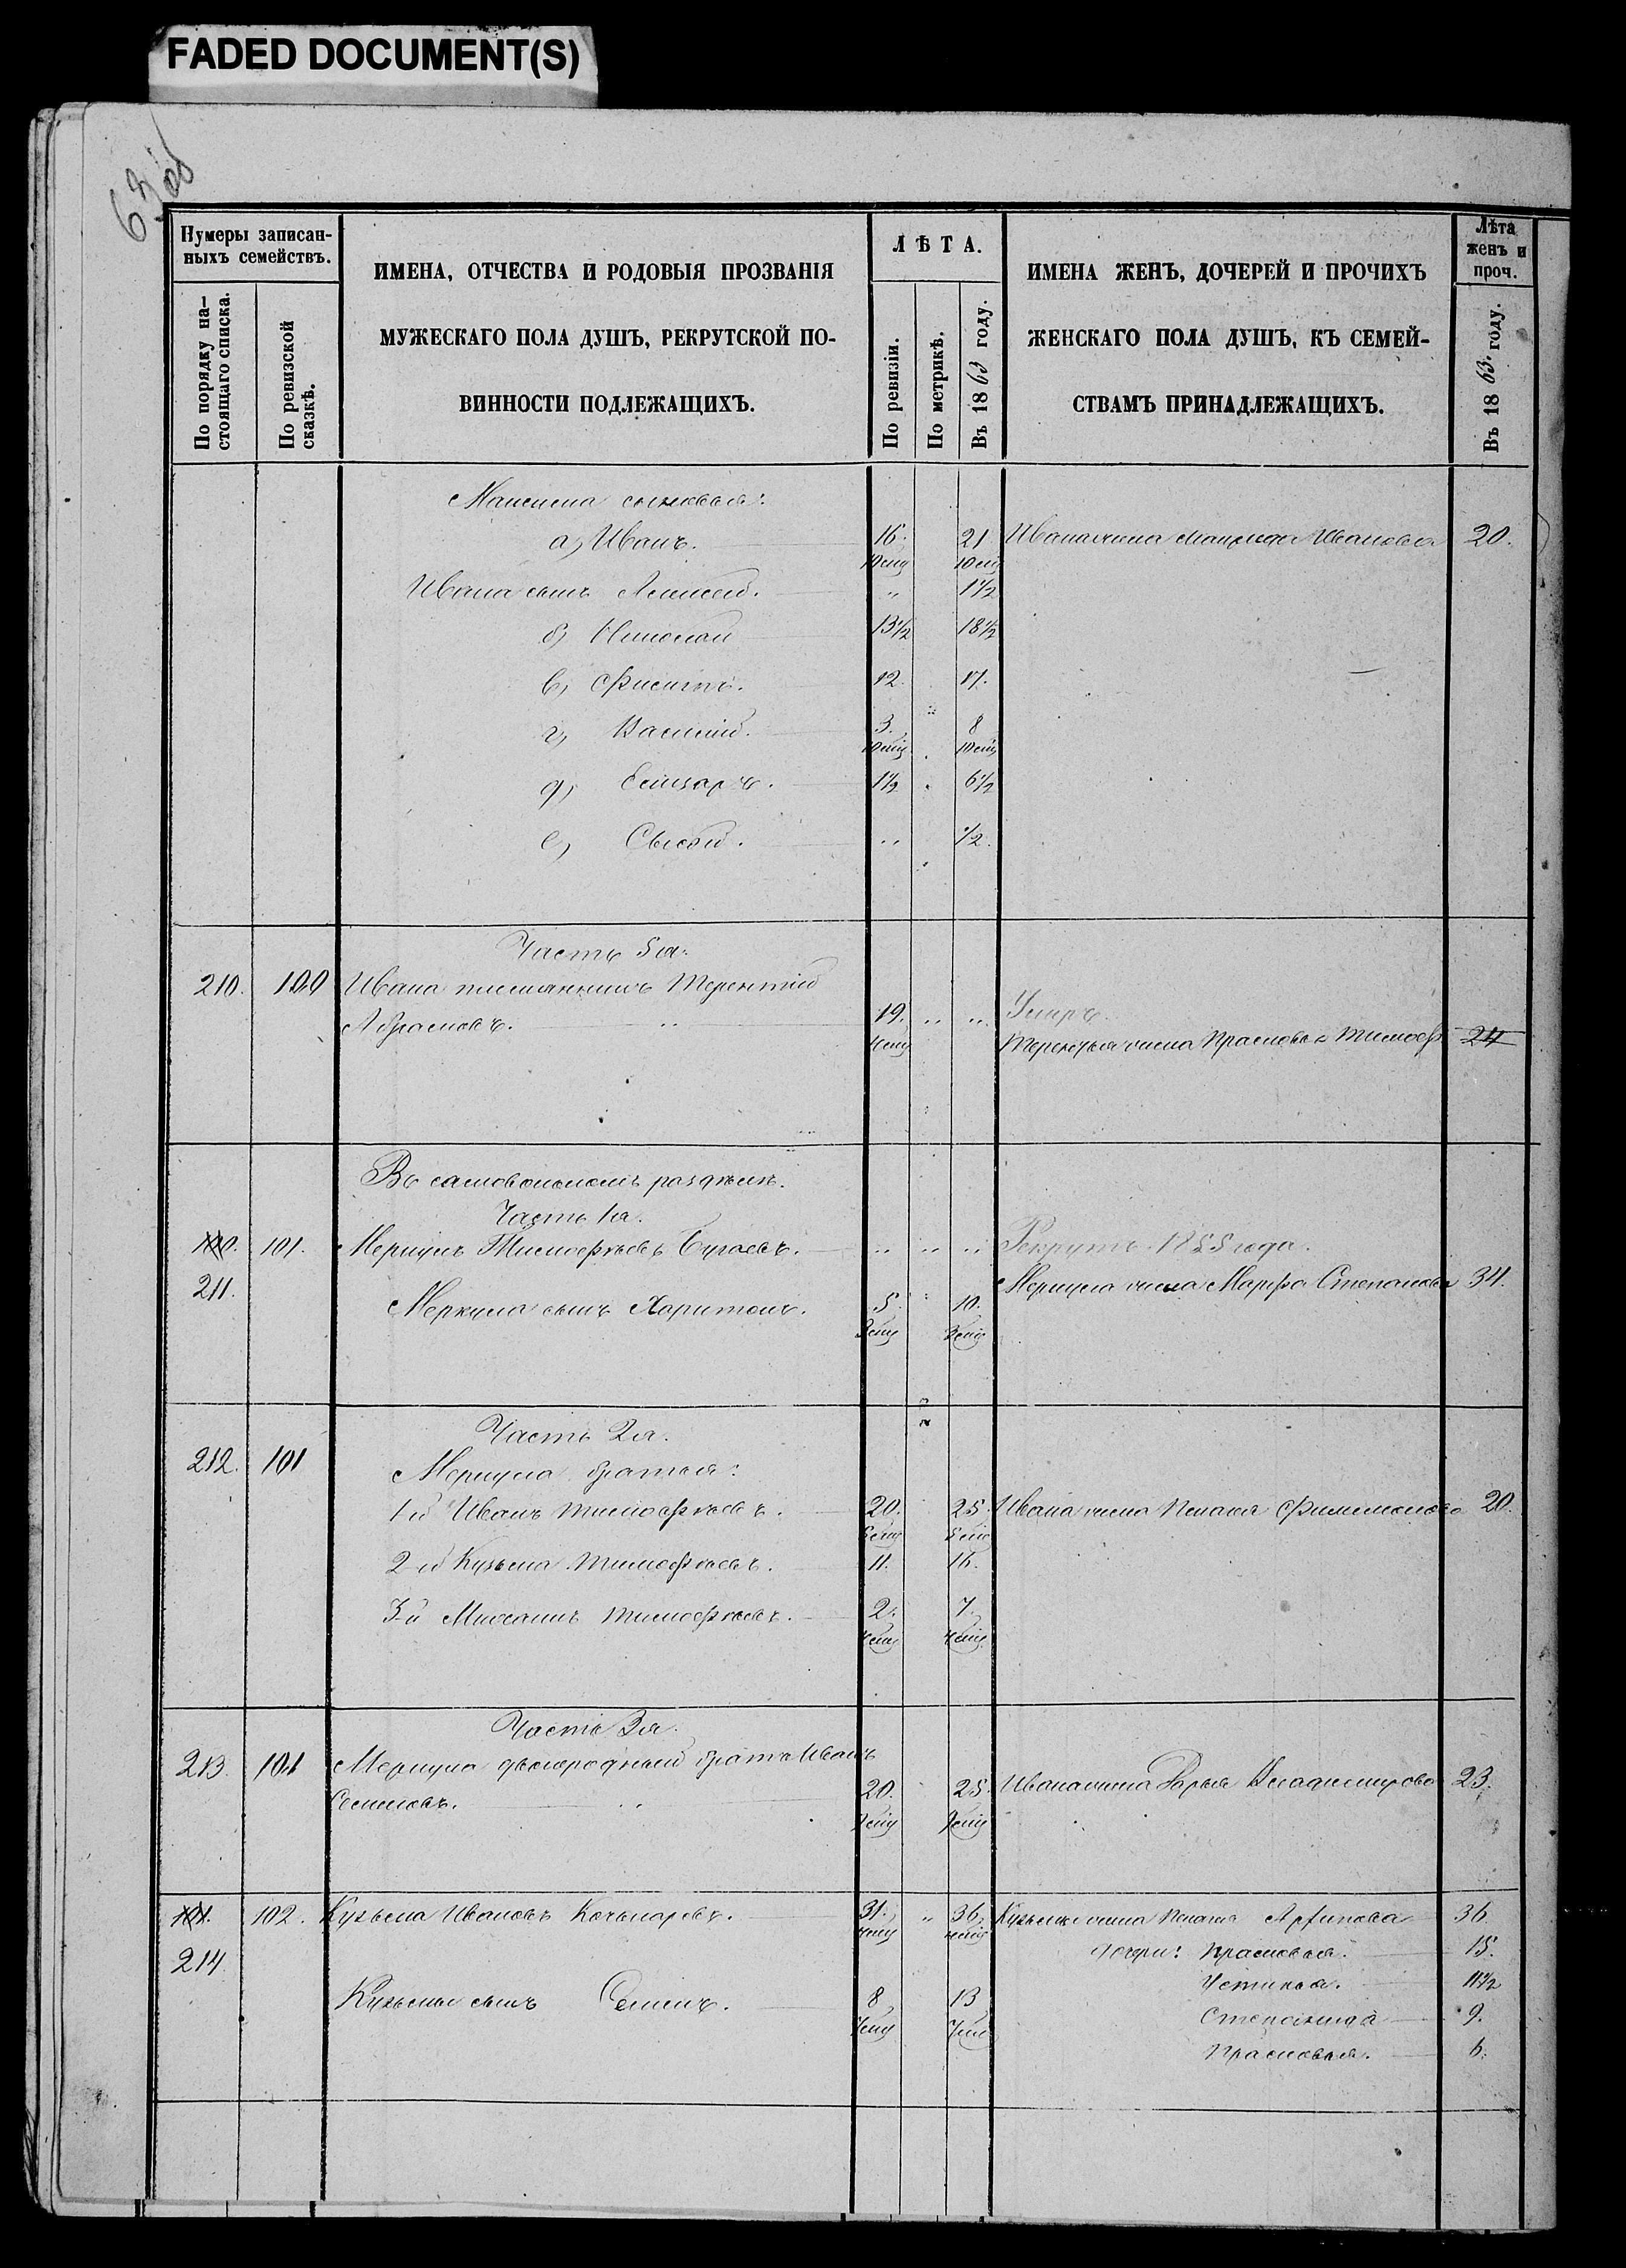 FADED DOCUMENT(S)
63 об
Нумеры записан-
ныхъ семействъ.
По порядку на-
стоящаго списка.
По ревизской
сказкѣ.
ИМЕНА, ОТЧЕСТВА И РОДОВЫЯ ПРОЗВАНІЯ
МУЖЕСКАГО ПОЛА ДУШЪ, РЕКРУТСКОЙ ПО-
ВИННОСТИ ПОДЛЕЖАЩИХЪ.
ЛѢТА.
По ревизіи.
По метрикѣ.
Въ 1863 году.
ИМЕНА ЖЕНЪ, ДОЧЕРЕЙ И ПРОЧИХЪ
ЖЕНСКАГО ПОЛА ДУШЪ, КЪ СЕМЕЙ-
СТВАМЪ ПРИНАДЛЕЖАЩИХЪ.
Лѣта
женъ и
проч.
Въ 1863. году.
Максима сыновья:
а) Иванъ. 16. 21 Ивана жена Иванова 20.
10 мц 10 мц
Ивана сынъ Алексей. " 1 1/2
б) Николай 13 1/2 18 1/2
в) 12. 17.
г) Василій. 3. 8
10 мц 10 мц
д) Елизаръ. 1 1/2 6 1/2
е) " 1/2.
Часть 5я.
210. 100 Ивана племянникъ Терентій
Абрамовъ. " 19. " " Умеръ.
Терентья жена Прасковья Тимоѳ. 24
Въ самовольномъ раздѣлѣ.
Часть 1я.
100. 101. Меркулъ Тимофѣевъ Бугаевъ. " " " Рекрутъ 1855 года.
211. Меркула жена Марфа Степанова 34.
Меркула сынъ Харитонъ. 5. 10.
Часть 2я.
212. 101 Меркула братья:
1й Иванъ Тимофѣевъ. 20. 25. Ивана жена Пелагея Филимонова 20.
2-й Кузьма Тимофѣевъ. 11. 16.
3-й Михаилъ Тимофѣевъ. 2. 7.
Часть 3я.
213. 101 Меркула двоюродный братъ Иванъ
Семеновъ. " 20. 25. Ивана жена Дарья Владимирова 23.
101. 102. Кузьма Ивановъ Кочкаревъ. 31. " 36. Кузьмы жена Пелагея 36
214 дочери: Прасковья. 15.
Устинья. 11 1/2
Кузьмы сынъ Семенъ. 8 13 Степанида 9.
Прасковья. 6.